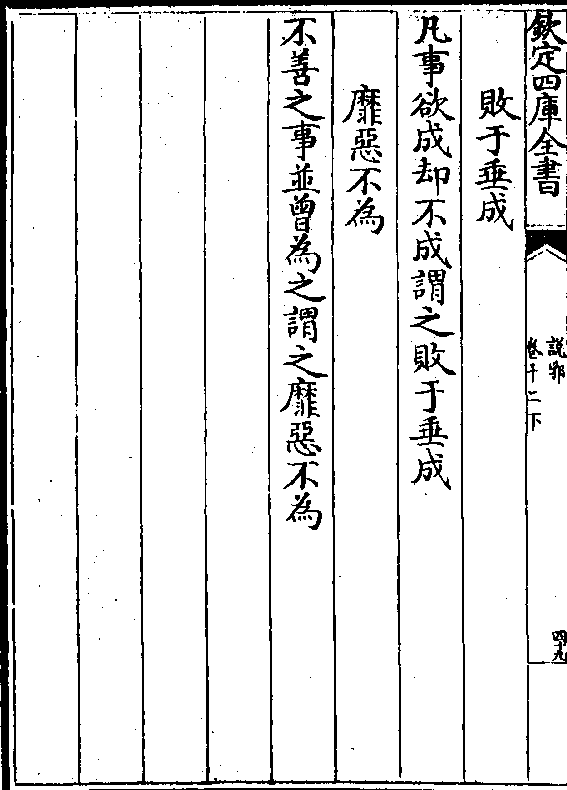 欽定四庫全書
說郛
卷十二下
四九
敗于垂成
凡事欲成却不成謂之敗于垂成
靡惡不為
不善之事並曾為之謂之靡惡不為